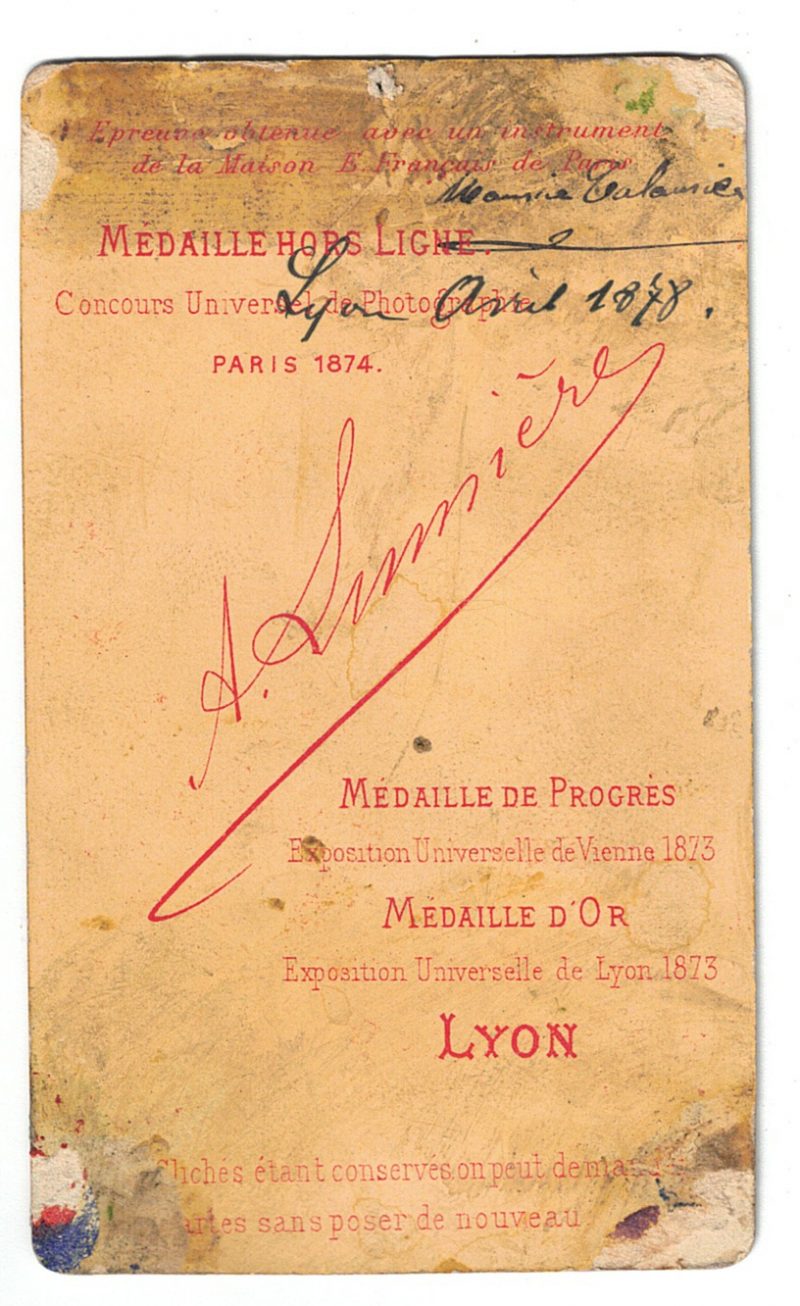 Epreuve obtenue avec un instrument
de la Maison E. Français de Paris
MÉDAILLE HORS LIGNE.
Concours Universel de Photographie
Lyon Avril 1878.
PARIS 1874.
A. Lumière
MÉDAILLE DE PROGRÈS
Exposition Universelle de Vienne 1873
MÉDAILLE D'OR
Exposition Universelle de Lyon 1873
LYON
Clichés étant conservés on peut
sans poser de nouveau